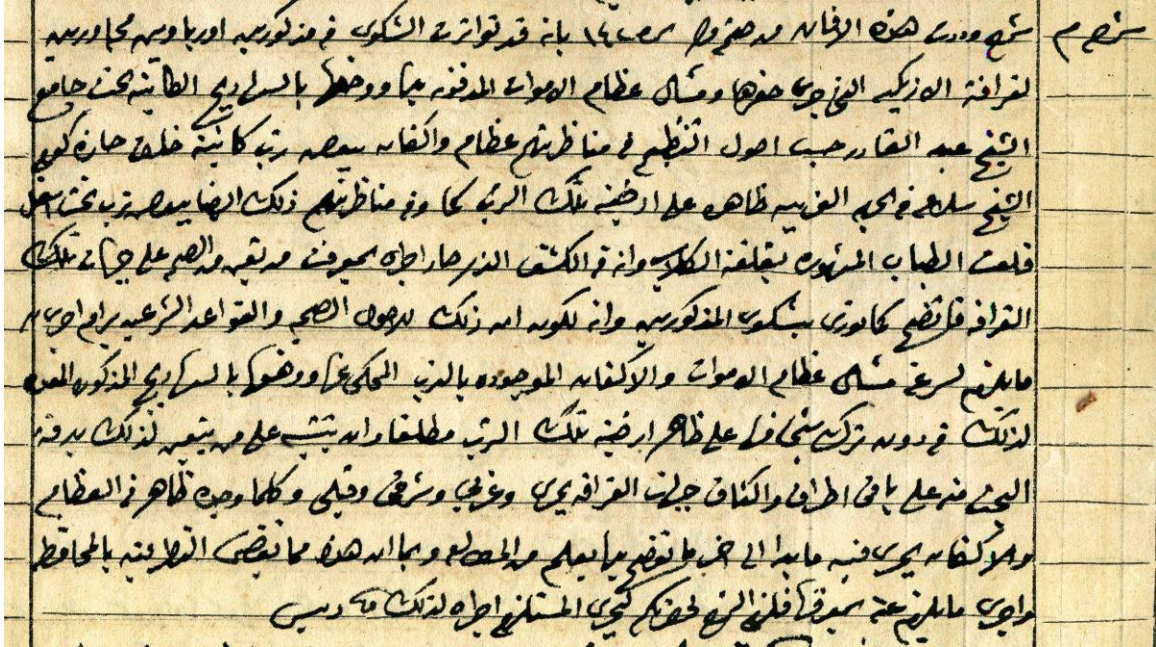 وردت هذه الافاده من صحة مصر ١٤٢ بانه قد تواترت الشكوى من مذكورين اورباويين مجاورين
لقرافة الازبكيه التى جرى حفرها ومشال عظام الاموات المدفونه بها ووضعها بالسهاريج الكاينه تحت جامع
الشيخ عبد القادر حسب اصول التنظيم فى مناظرتهم عظام واكفان ببعض ترب كائنة خلف حارة كوم
الشيخ سلامه فى الجهه الغربيه ظاهره على ارضية تلك الترب كما وفى مناظرتهم ذلك ايضا ببعض ترب تحت
قلعت الطباب المشهوره بقلعة الكلاب وانه فى الكشف الذى صار اجراه بمعرفت من تعين من الصحه على جهات تلك
القرافه فاتضح كما تورى بشكوى المذكورين وانه لكون ان ذلك للاصول الصحيه والقواعد الشرعيه يرام اجرى
ما يلزم لسرعة مشال عظام الاموات والاكفان الموجوده بالترب المحكى عنها ووضعها بالسهاريج المذكور المعده
لذلك من دون ترك شيئا منها على ظاهر ارضية تلك الترب مطلقا وان ينبه على من يتعين لذلك بدقة
البحث منه على باقى اطراف واكناف جهات القرافه بحرى وغربى وشرقى وقبلى وكلما وجده ظاهر من العظام
والاكفان يجرى فيه ما بدا الى اخر ما توضح بها يعلم من المطالعه وبما ان هذه مما تقتضى النظر فيه بالمحافظه
واجرى ما يلزم عنه بمعرفتها فلزم الشرح لحضرتكم كى يجرى المستلزم اجراه لذلك